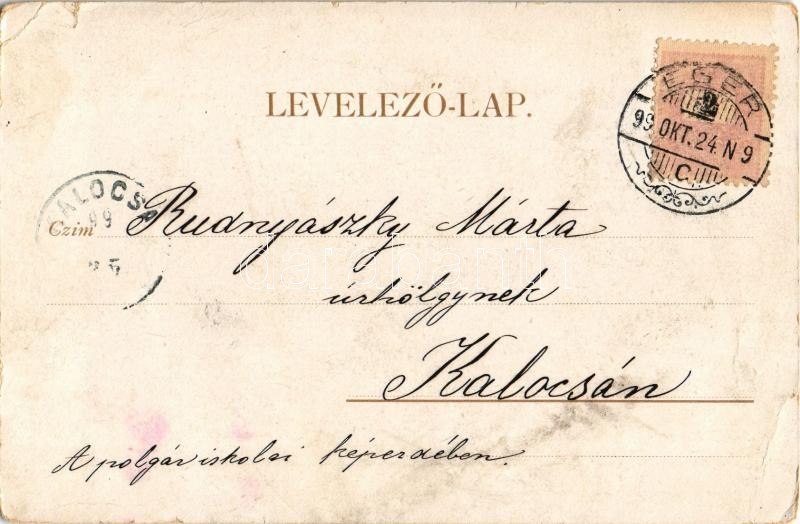 LEVELEZŐ-LAP.
EGER
2
99 OKT. 24. N 9
C
KALOCSA
99
Czim Rudnyászky Márta
úrhölgynek
Kalocsán
A polgáriskolai képezdében.